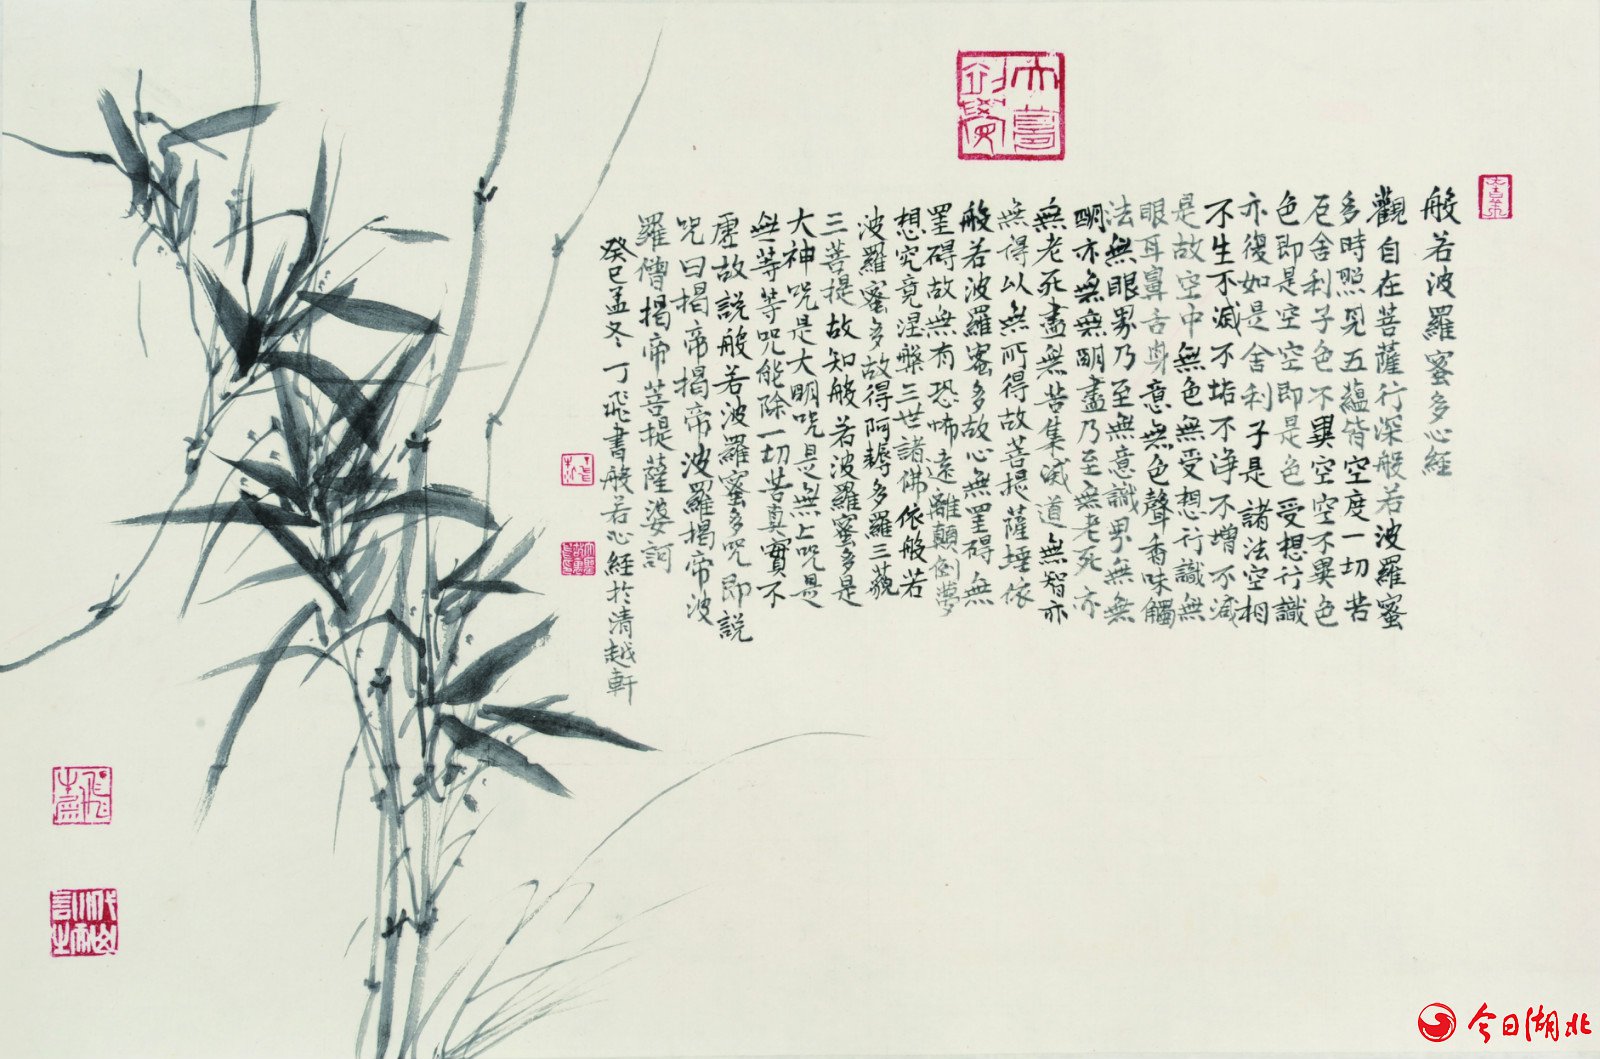 般若波羅蜜多心經
觀自在菩薩行深般若波羅蜜
多時照見五蘊皆空度一切苦
厄舍利子色不異空空不異色
色即是空空即是色受想行識
亦復如是舍利子是諸法空相
不生不滅不垢不净不增不減
是故空中無色無受想行識無
眼耳鼻舌身意無色聲香味觸
法無眼界乃至無意識界無無
明亦無無明盡乃至無老死亦
無老死盡無苦集滅道無智亦
無得以無所得故菩提薩埵依
般若波羅蜜多故心無罣碍無
罣碍故無有恐怖遠離顛倒夢
想究竟涅槃三世諸佛依般若
波羅蜜多故得阿耨多羅三藐
三菩提故知般若波羅蜜多是
大神咒是大明咒是無上咒是
無等等咒能除一切苦真實不
虛故説般若波羅蜜多咒即説
咒曰揭帝揭帝波羅揭帝波
羅僧揭帝菩提薩婆訶
癸巳孟冬丁飛書般若心經於清越軒
今日湖北